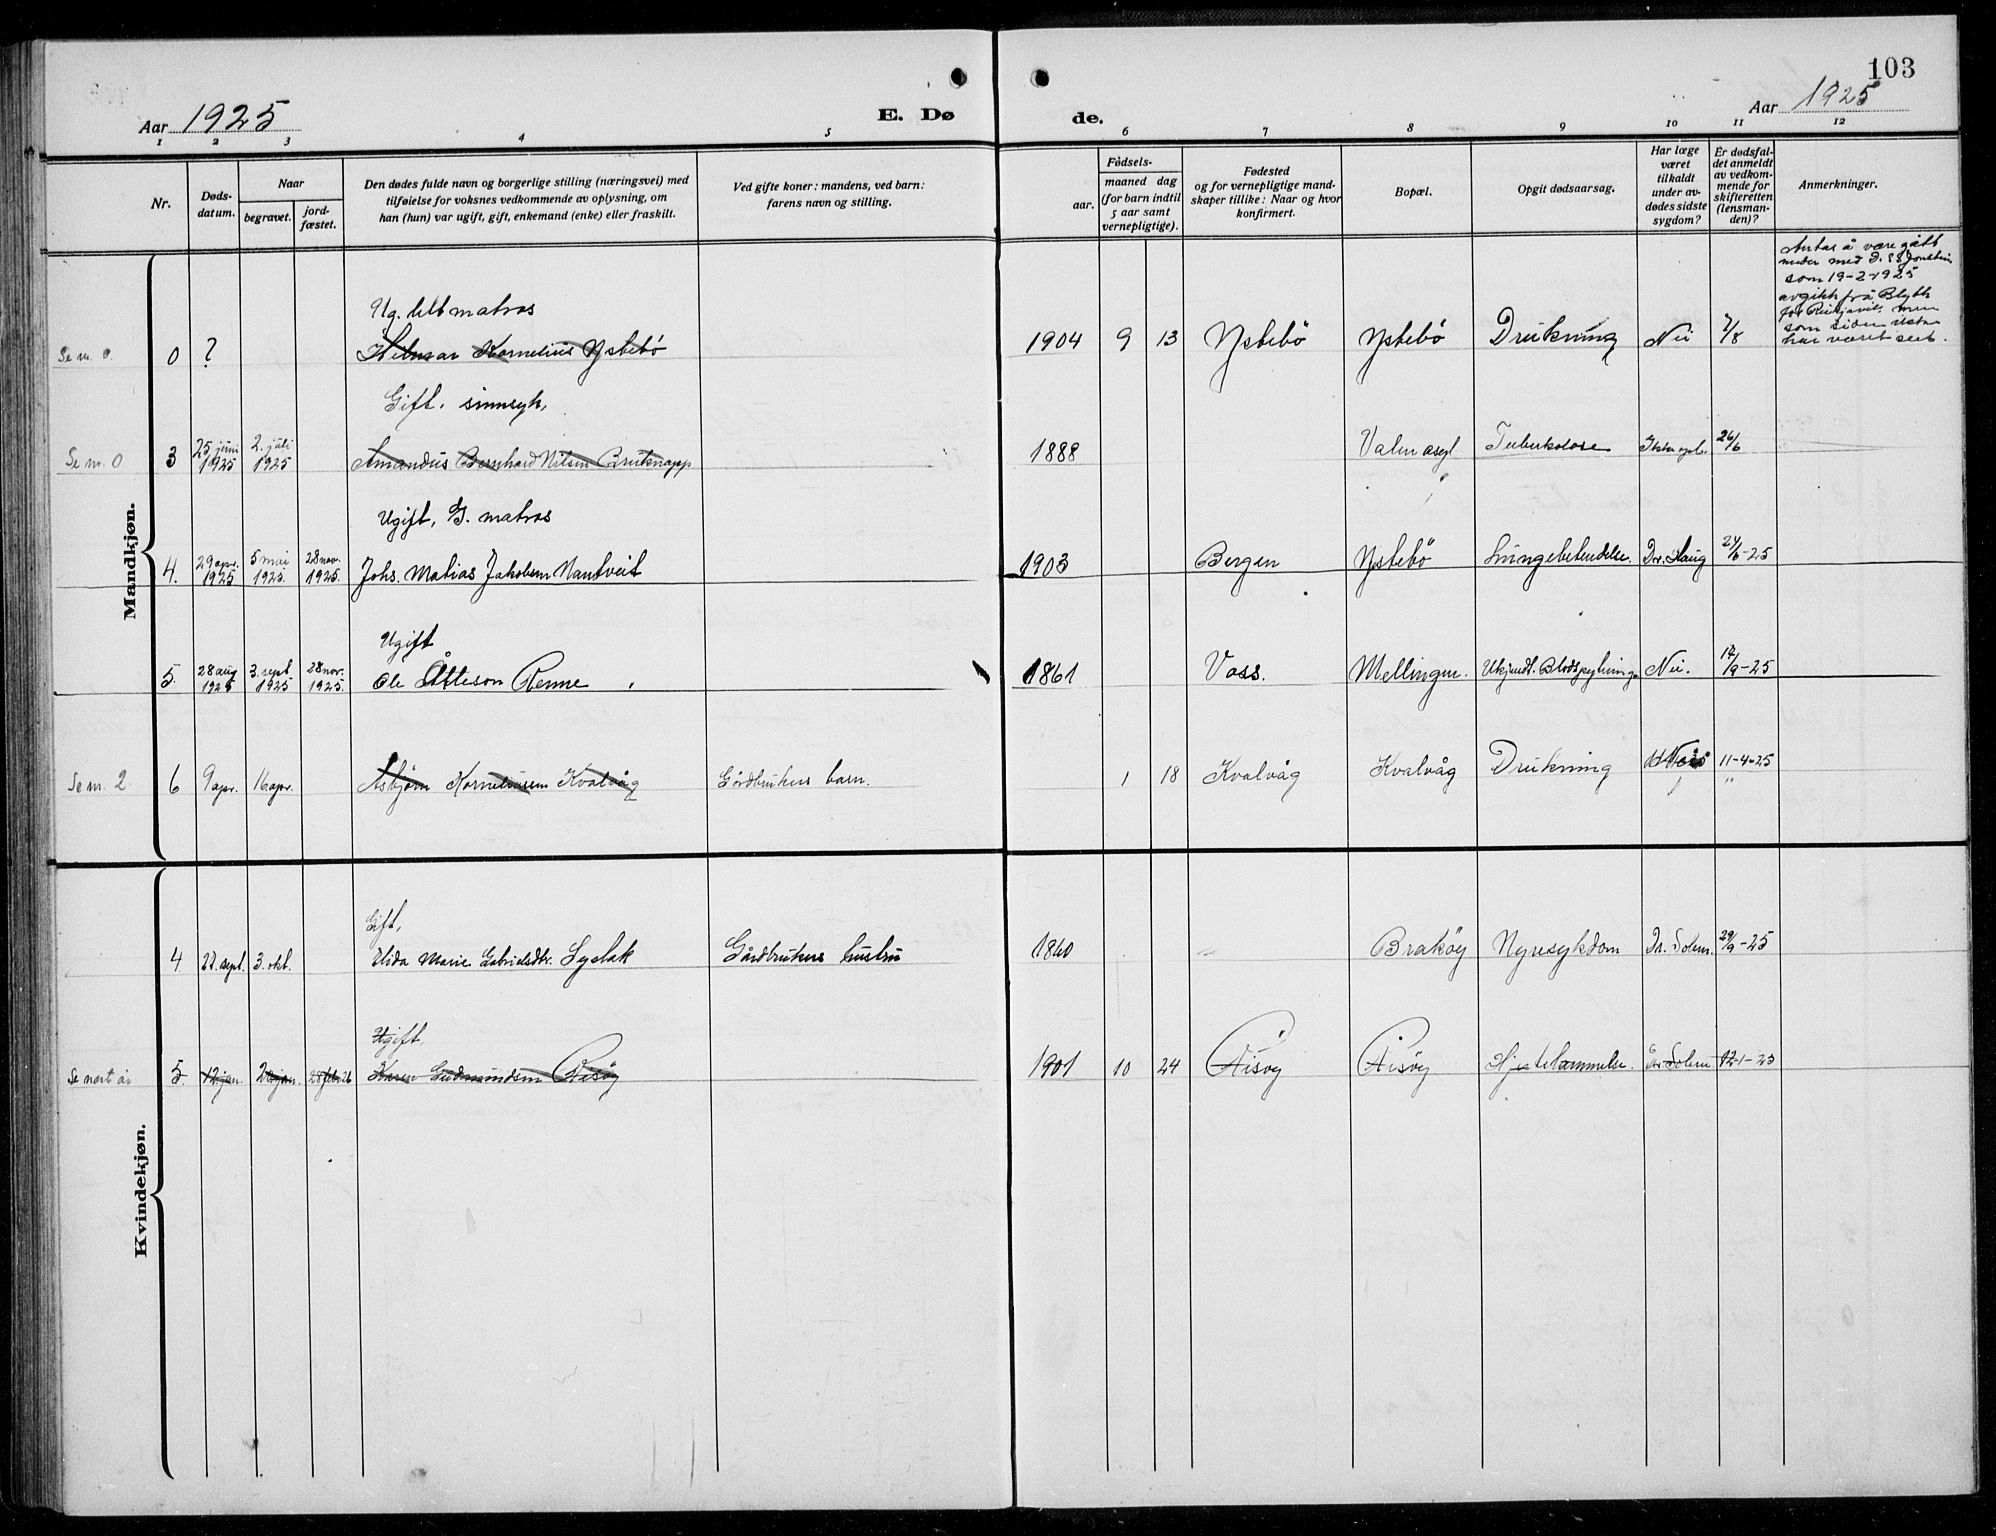 103
Aar 1925
E. Dø
de.
Aar 1925
1 2 3 4 5 6 7 8 9 10 11 12
Nr.
Døds-
datum.
Naar
begravet.
jord-
fæstet.
Den dødes fulde navn og borgerlige stilling (næringsvei) med
tilføielse for voksnes vedkommende av oplysning, om
han (hun) var ugift, gift, enkemand (enke) eller fraskilt.
Ved gifte koner: mandens, ved barn:
farens navn og stilling.
Fødsels-
aar.
maaned dag
(for barn indtil
5 aar samt
vernepligtige).
Fødested
og for vernepligtige mand-
skaper tillike: Naar og hvor
konfirmert.
Bopæl.
Opgit dødsaarsag.
Har læge
været
tilkaldt
under av-
dødes sidste
sygdom?
Er dødsfal-
det anmeldt
av vedkom-
mende for
skifteretten
(lensman-
den)?
Anmerkninger.
Mandkjøn.
Antas å være gått
med D. S
som 19-2-1925
avgikk frå Blyth
for men
som siden ikke
har været sett.
Ug. lettmatros
Se nr. 0 0 ? Hilmar Kornelius Ystebö 1904 9 13 Ystebö Ystebö Drukning Nei 7/8
Gift. sinnsyk,
Se nr. 0 3 25 juni 1925 2. juli 1925 Amandus Bernhard Nilsen Bruknapp 1888 Valen asyl Tuberkolose 26/6
Ugift, matros
4. 29 apr. 1925 5 mai 1925. 28 nov. 1925. Johs. Matias Jakobsen Nautveit 1903 Bergen Ystebö Lungebetendelse. Dr. Haug 24/6-25
Ugift
5. 28 aug 1925 3. sept 1925 28 nov. 1925. Ole Åtteson Renne 1861 Voss. Mellingen. Ukjendt. Nei. 12/9-25
Se nr. 2 6 9 apr. 16 apr. Asbjørn Korneliusen Kvalvåg Gårdbrukers barn. 1 18 Kvalvåg Kvalvåg Drukning Nei 11-4-25
Kvindekjøn.
Gift,
4 27. sept. 3. okt. Elida Marie Gabrielsdtr. Gårdbrukers hustru 1860 Brakøy Nyresykdom Dr. Solem. 29/9-25
Ugift,
Se nært år 5. 12 jan. 20 jan. 28 feb. 26 Karen Gudmundsen Risöy 1901 10 24 Risöy Risöy Hjertelammelse. Dr. Solem 12-1-25